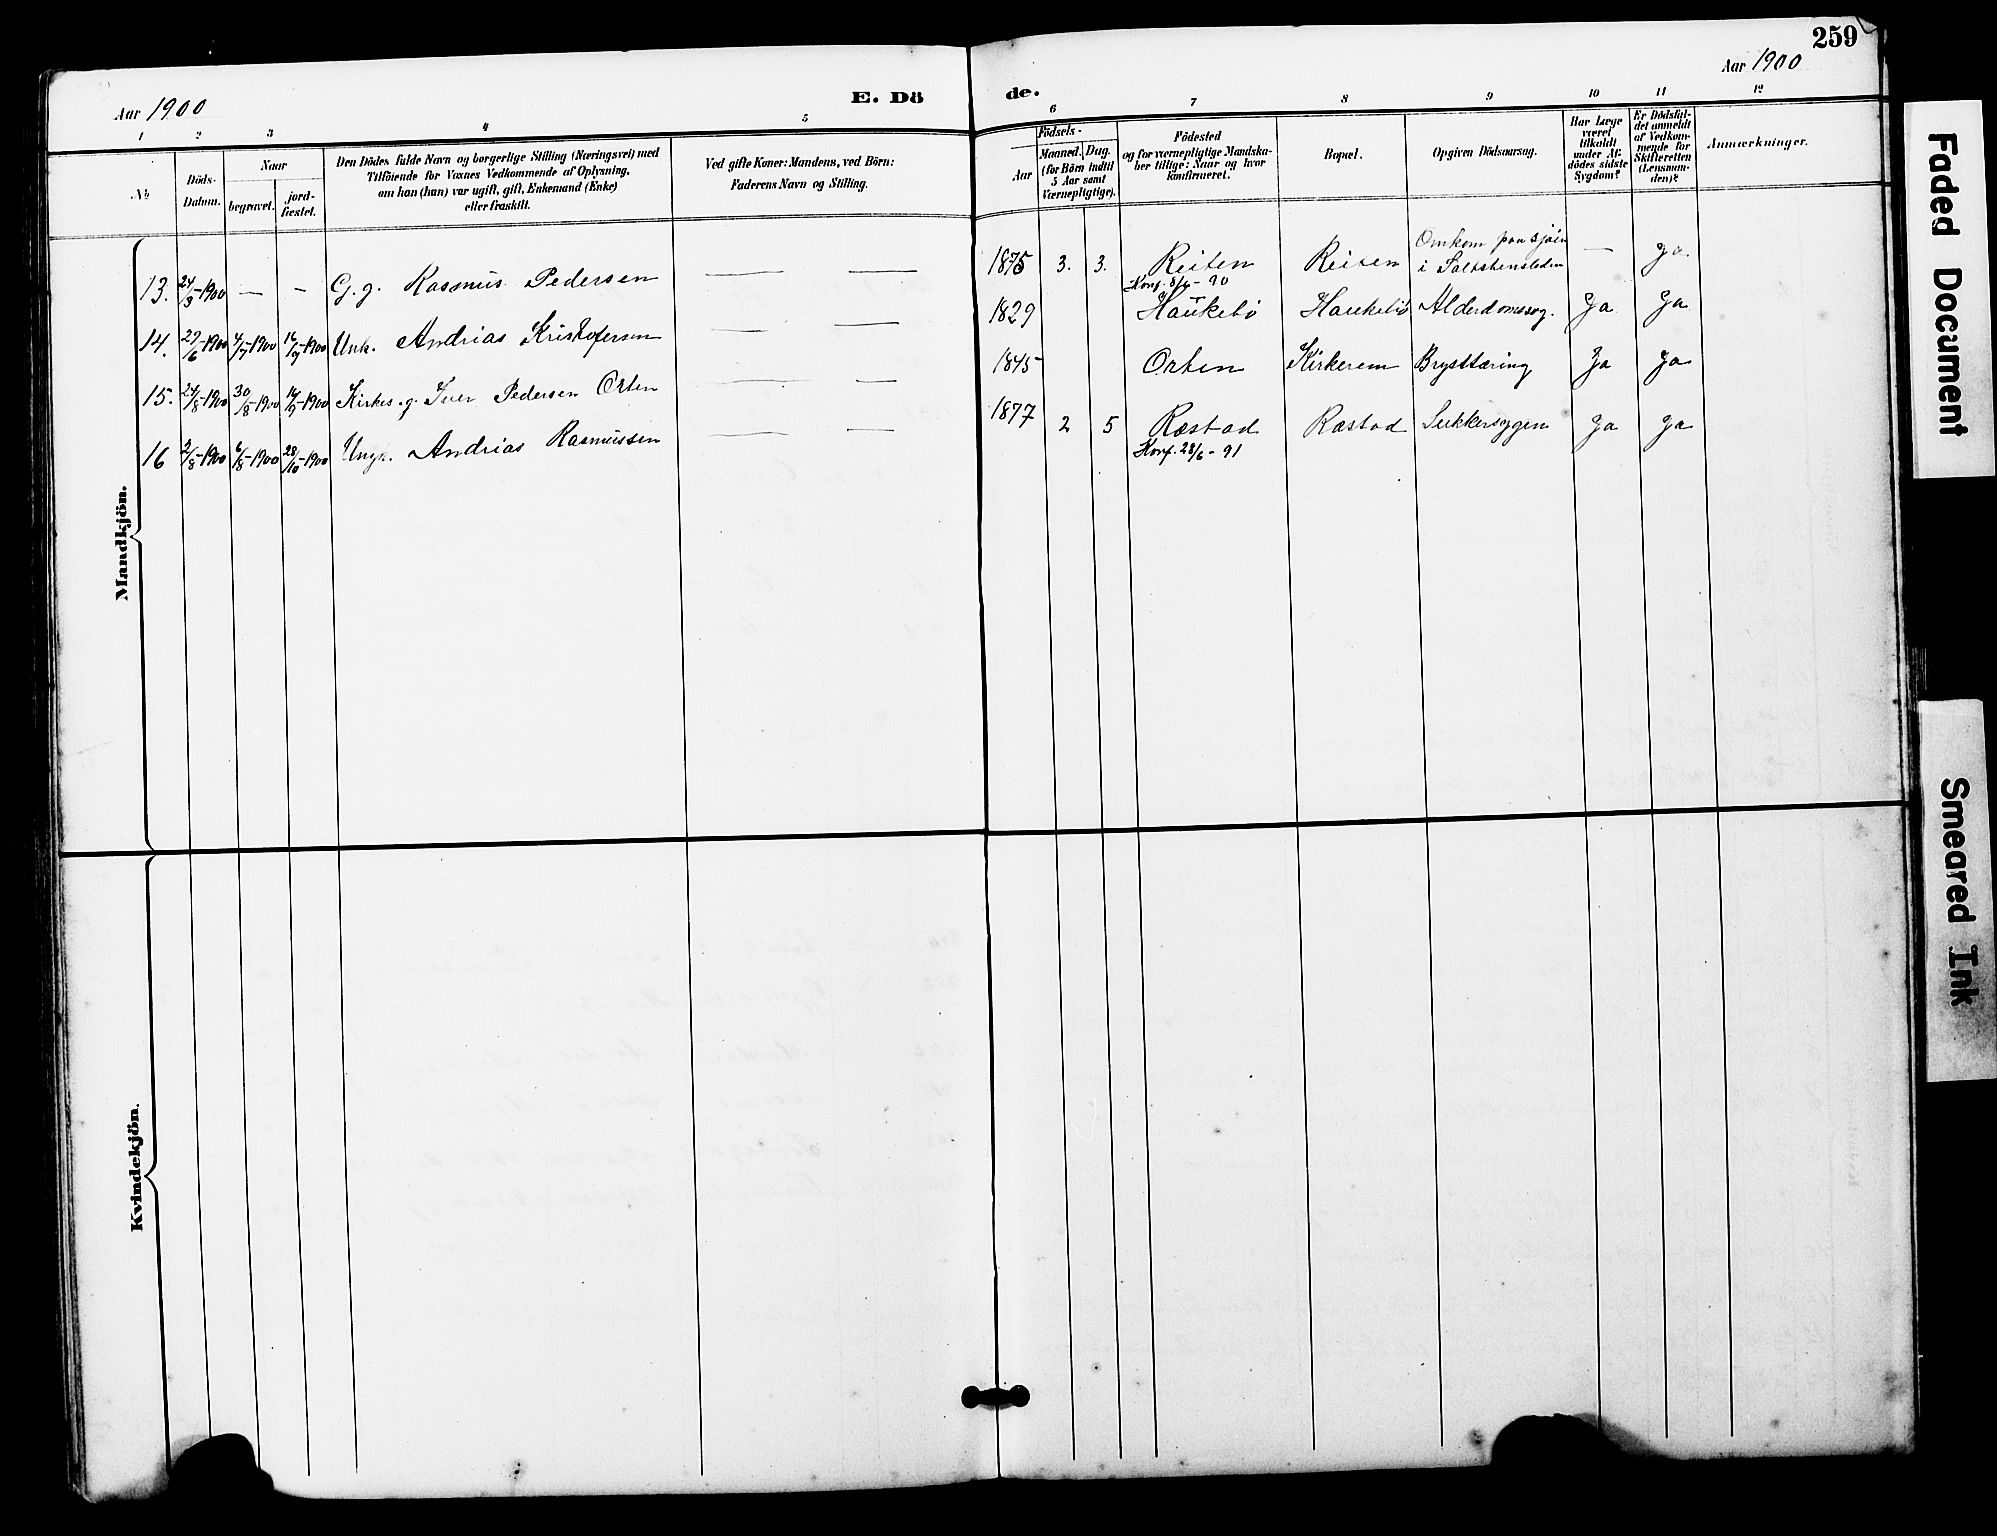 259
Aar 1900
Aar 1900
E. Dö
de.
1 2 3 4 5
6 7 8 9 10 11 12
No
Döds-
Datum.
Naar
begravet.
jord-
fæstet.
Den Dödes fulde Navn og borgerlige Stilling (Næringsvei) med
Tilföiende for Voxnes Vedkommende af Oplysning,
om han (hun) var ugift, gift, Enkemand (Enke)
eller fraskilt.
Ved gifte Koner: Mandens, ved Börn:
Faderens Navn og Stilling.
Födsels-
Aar
Maaned. Dag.
(for Börn indtil
5 Aar samt
Værnepligtige).
Födested
og for værnepligtige Mandska-
ber tillige: Naar og hvor
konfirmeret.
Bopæl.
Opgiven Dödsaarsag.
Har Læge
været
tilkaldt
under Af-
dödes sidste
Sygdom?
Er Dödsfal-
det anmeldt
af Vedkom-
mende for
Skifteretten
(Lensman-
den)?
Anmærkninger.
Mandkjön.
13. 24/3-1900 — — G.g. Rasmus Pedersen — — 1875 3. 3. Reiten Reiten Omkom paa sjøen — ja.
Konf. 8/6-90 i
14. 29/6-1900 4/7-1900 16/7-1900 Unk. Andrias Kristofersen — — 1829 Haukebø Haukebø Alderdomssvg. Ja Ja
15. 24/8-1900 30/8-1900 16/9-1900 Kirkes.g. Iver Pedersen Orten — — 1845 Orten Kirkerem Brysttæring Ja Ja
16 2/8-1900 6/8-1900 28/10-1900 Ungk. Andrias Rasmussen — — 1877 2 5 Ræstad Ræstad Sukkersygen Ja Ja
Konf. 28/6-91
Kvindekjön.
Faded Document
Smeared Ink